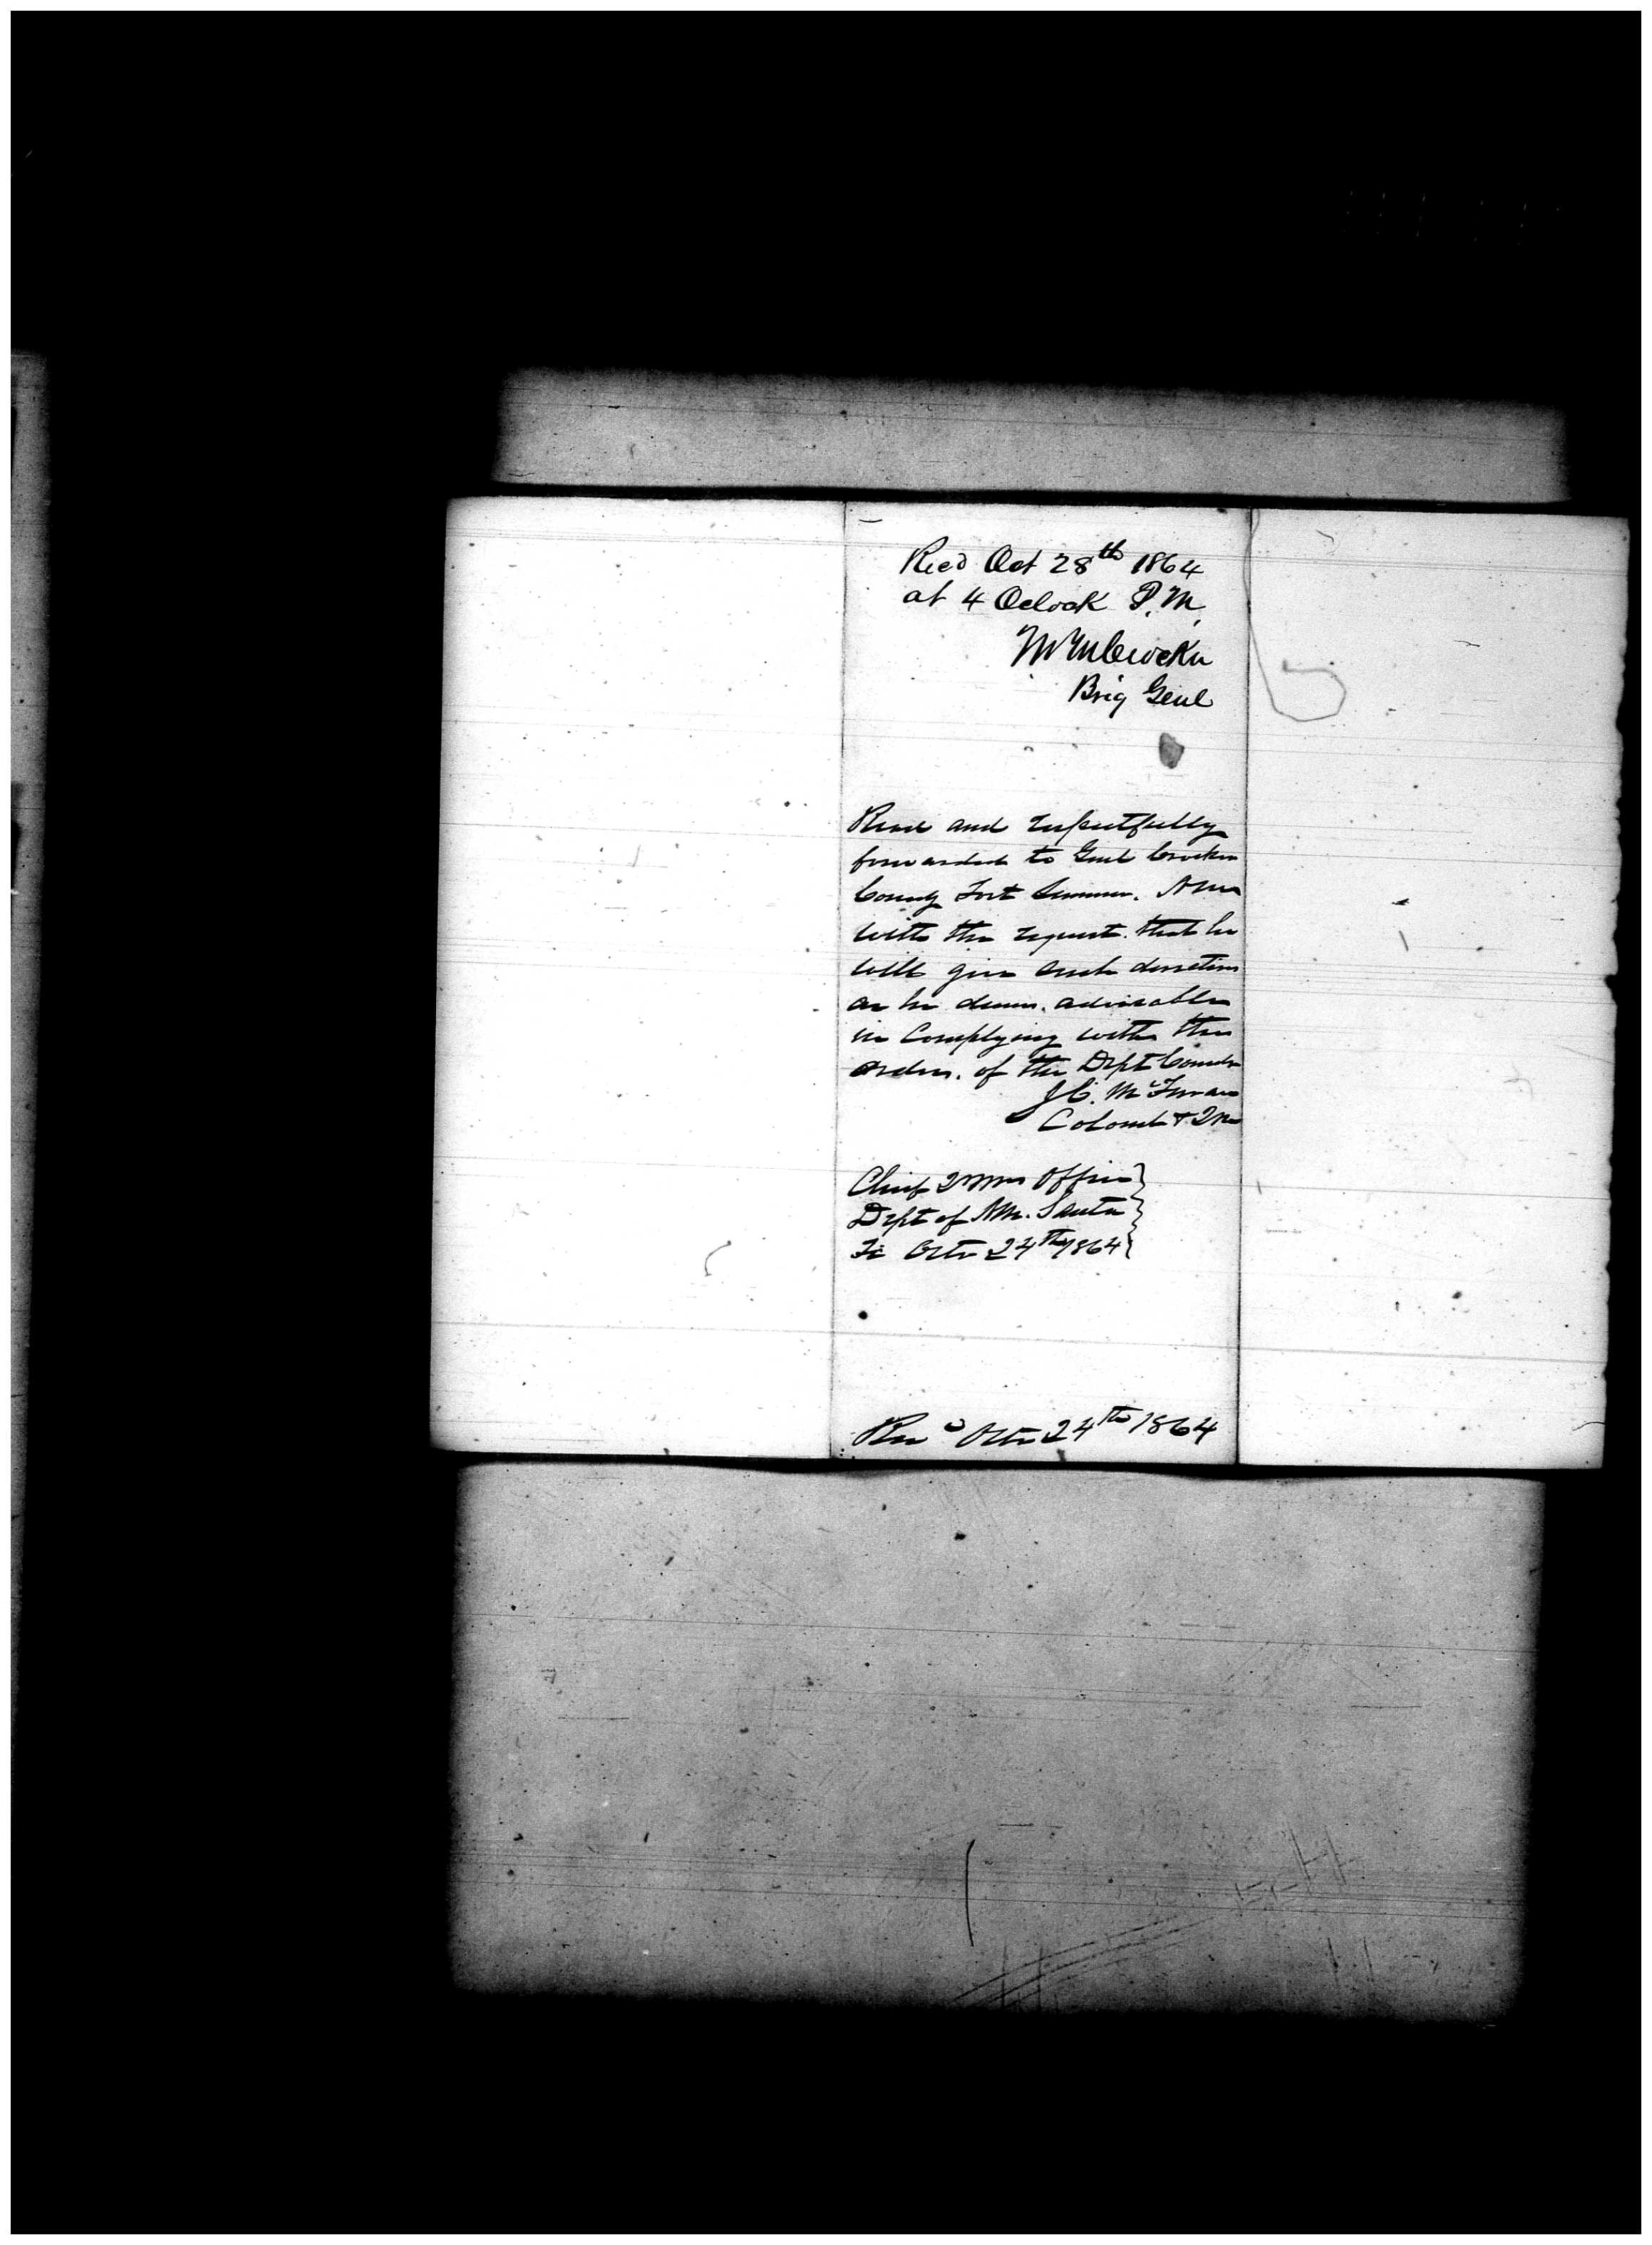 Recd Oct 28th 1864
at 4 Oclock P.M.
M M Crocker
Brig Genl
Read and respectfully
forwarded to Genl Crocker
Comdg Fort Sumner. N M
with the request that he
will give such directions
as he deems advisable
in complying with the
orders of the Dept Comdr
J.C. McFerran
Colonel & QM
Chief QMrs Office
Dept of NM. Santa
Fe Octr 24th 1864
Recd Octr 24th 1864